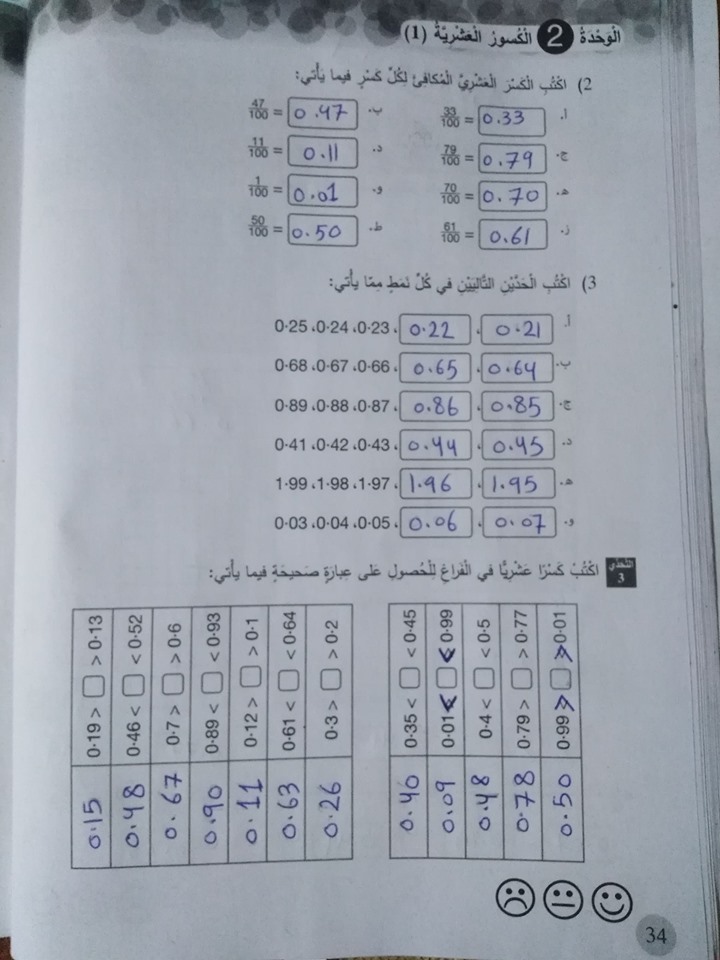 الْوَحْدَةُ 2 الْكُسورُ الْعَشْرِيَّةُ (1)
2) اكْتُبِ الْكَسْرَ الْعَشْرِيَّ الْمُكافِئَ لِكُلِّ كَسْرٍ فيما يَأْتي:
أ. 33/100 = 0.33 ب. 47/100 = 0.47
ج. 79/100 = 0.79 د. 11/100 = 0.11
هـ. 70/100 = 0.70 و. 1/100 = 0.01
ز. 61/100 = 0.61 ط. 50/100 = 0.50
3) اكْتُبِ الْحَدَّيْنِ التّالِيَيْنِ في كُلِّ نَمَطٍ مِمّا يَأْتي:
أ. 0·25، 0·24، 0·23، 0.22، 0.21
ب. 0·68، 0·67، 0·66، 0.65، 0.64
ج. 0·89، 0·88، 0·87، 0.86، 0.85
د. 0·41، 0·42، 0·43، 0.44، 0.45
هـ. 1·99، 1·98، 1·97، 1.96، 1.95
و. 0·03، 0·04، 0·05، 0.06، 0.07
التَّحَدّي 3 اكْتُبْ كَسْرًا عَشْرِيًّا في الْفَراغِ لِلْحُصولِ عَلى عِبارَةٍ صَحيحَةٍ فيما يَأْتي:
0·35 < □ < 0·45 0.40
0·01 < □ < 0·99 0.09
0·4 < □ < 0·5 0.48
0·79 > □ > 0·77 0.78
0·99 > □ > 0·01 0.50
0·19 > □ > 0·13 0.15
0·46 < □ < 0·52 0.48
0·7 > □ > 0·6 0.67
0·89 < □ < 0·93 0.90
0·12 > □ > 0·1 0.11
0·61 < □ < 0·64 0.63
0·3 > □ > 0·2 0.26
34